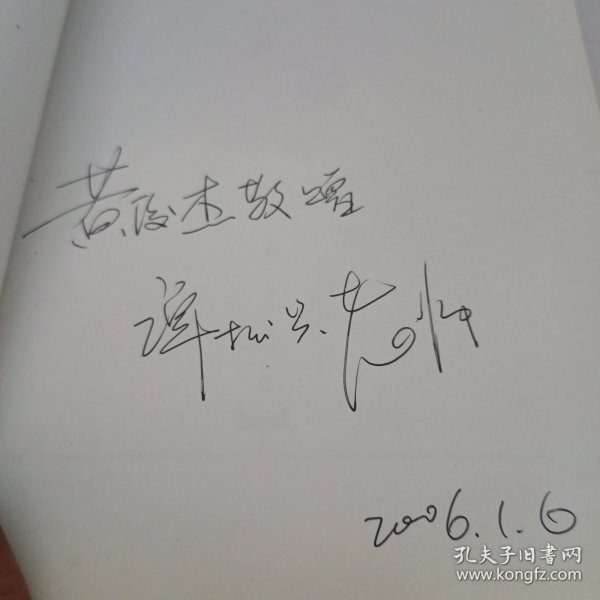 黄俊杰敬赠
谭松兴老师
2006.1.6
孔夫子旧書网
www.kongfz.com